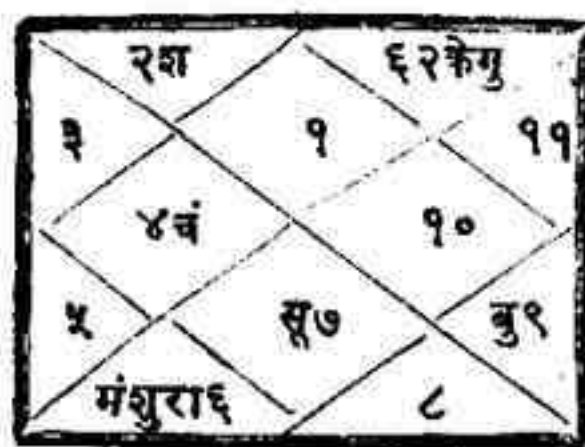 २श ६२केगु
३ १ ११
४चं १०
५ सू७ बु९
मंशुरा६ ८